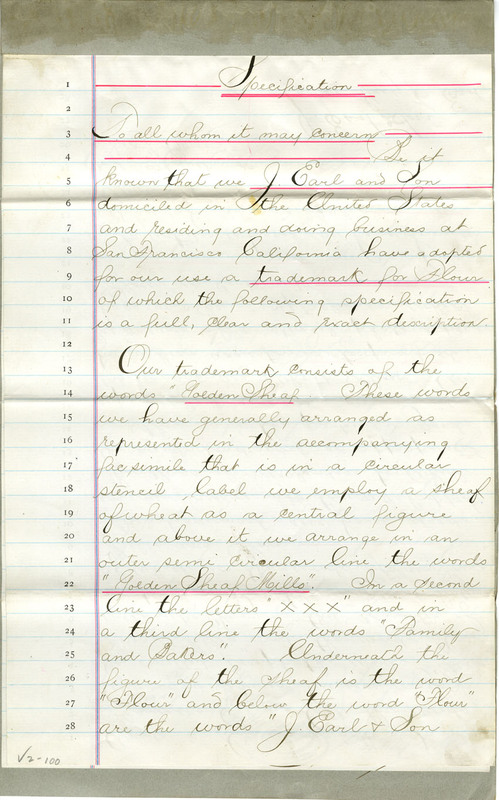 1 Specification
2
3 To all whom it may concern
4 Be it
5 known that we J Earl and Son
6 domiciled in the United States
7 and residing and doing business at
8 San Francisco California have adopted
9 for our use a trademark for Flour
10 of which the following specification
11 is a full, clear and exact description.
12
13 Our trademark consists of the
14 words "Golden Sheaf These words
15 we have generally arranged as
16 represented in the accompanying
17 fac simile that is in a circular
18 stencil label we employ a sheaf
19 of wheat as a central figure
20 and above it we arrange in an
21 outer semi circular line the words
22 "Golden Sheaf Mills". In a second
23 line the letters "XXX" and in
24 a third line the words "Family
25 and Bakers". Underneath the
26 figure of the sheaf is the word
27 "Flour" and below the word "Flour"
28 are the words "J. Earl & Son
V2-100